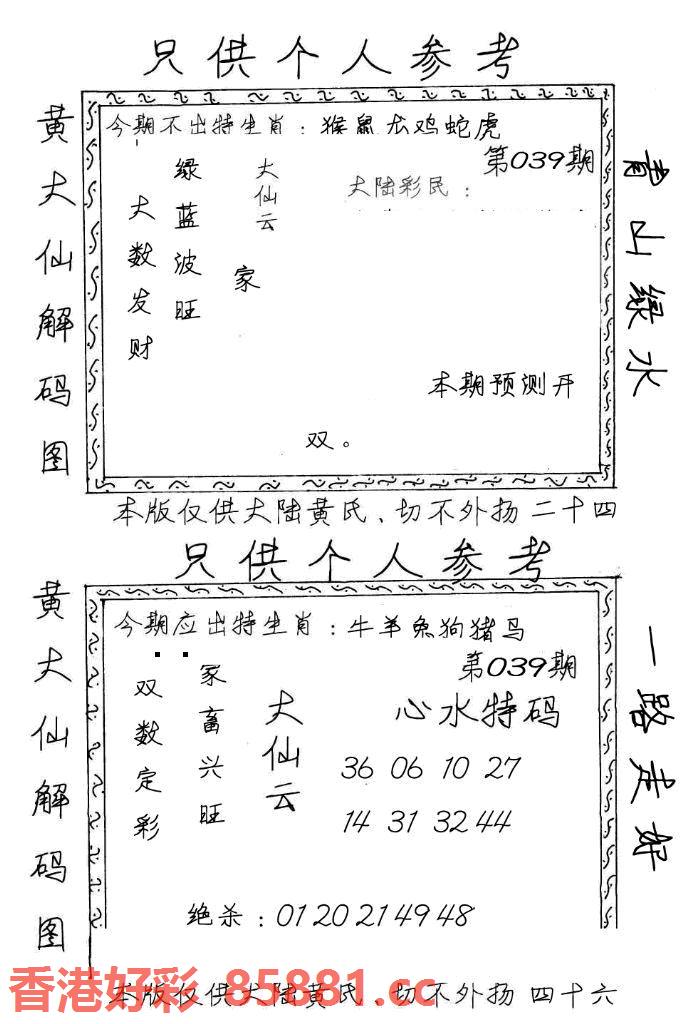 只供个人参考
黄大仙解码图
今期不出特生肖：猴鼠龙鸡蛇虎
第039期
大陆彩民：
大仙云
家
绿蓝波旺
大数发财
本期预测开
双。
青山绿水
本版仅供大陆黄氏、切不外扬二十四
只供个人参考
黄大仙解码图
今期应出特生肖：牛羊兔狗猪马
第039期
心水特码
大仙云
家畜兴旺
双数定彩
36 06 10 27
14 31 32 44
绝杀：01 20 21 49 48
一路走好
本版仅供大陆黄氏、切不外扬 四十六
香港好彩 85881.cc